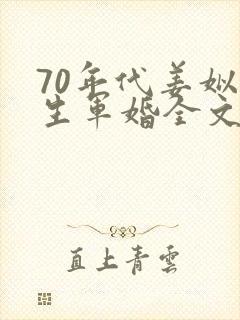 70年代姜姒
生军婚全文
直上青雲